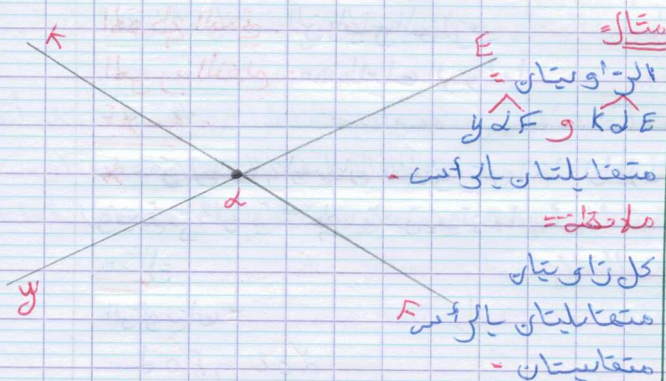 مثال=
الزاويتان =
KαE و yαF
متقابلتان بالرأس.
ملاحظة=
كل زاويتان
متقابلتان بالرأس
متقايستان.
K
E
α
y
F